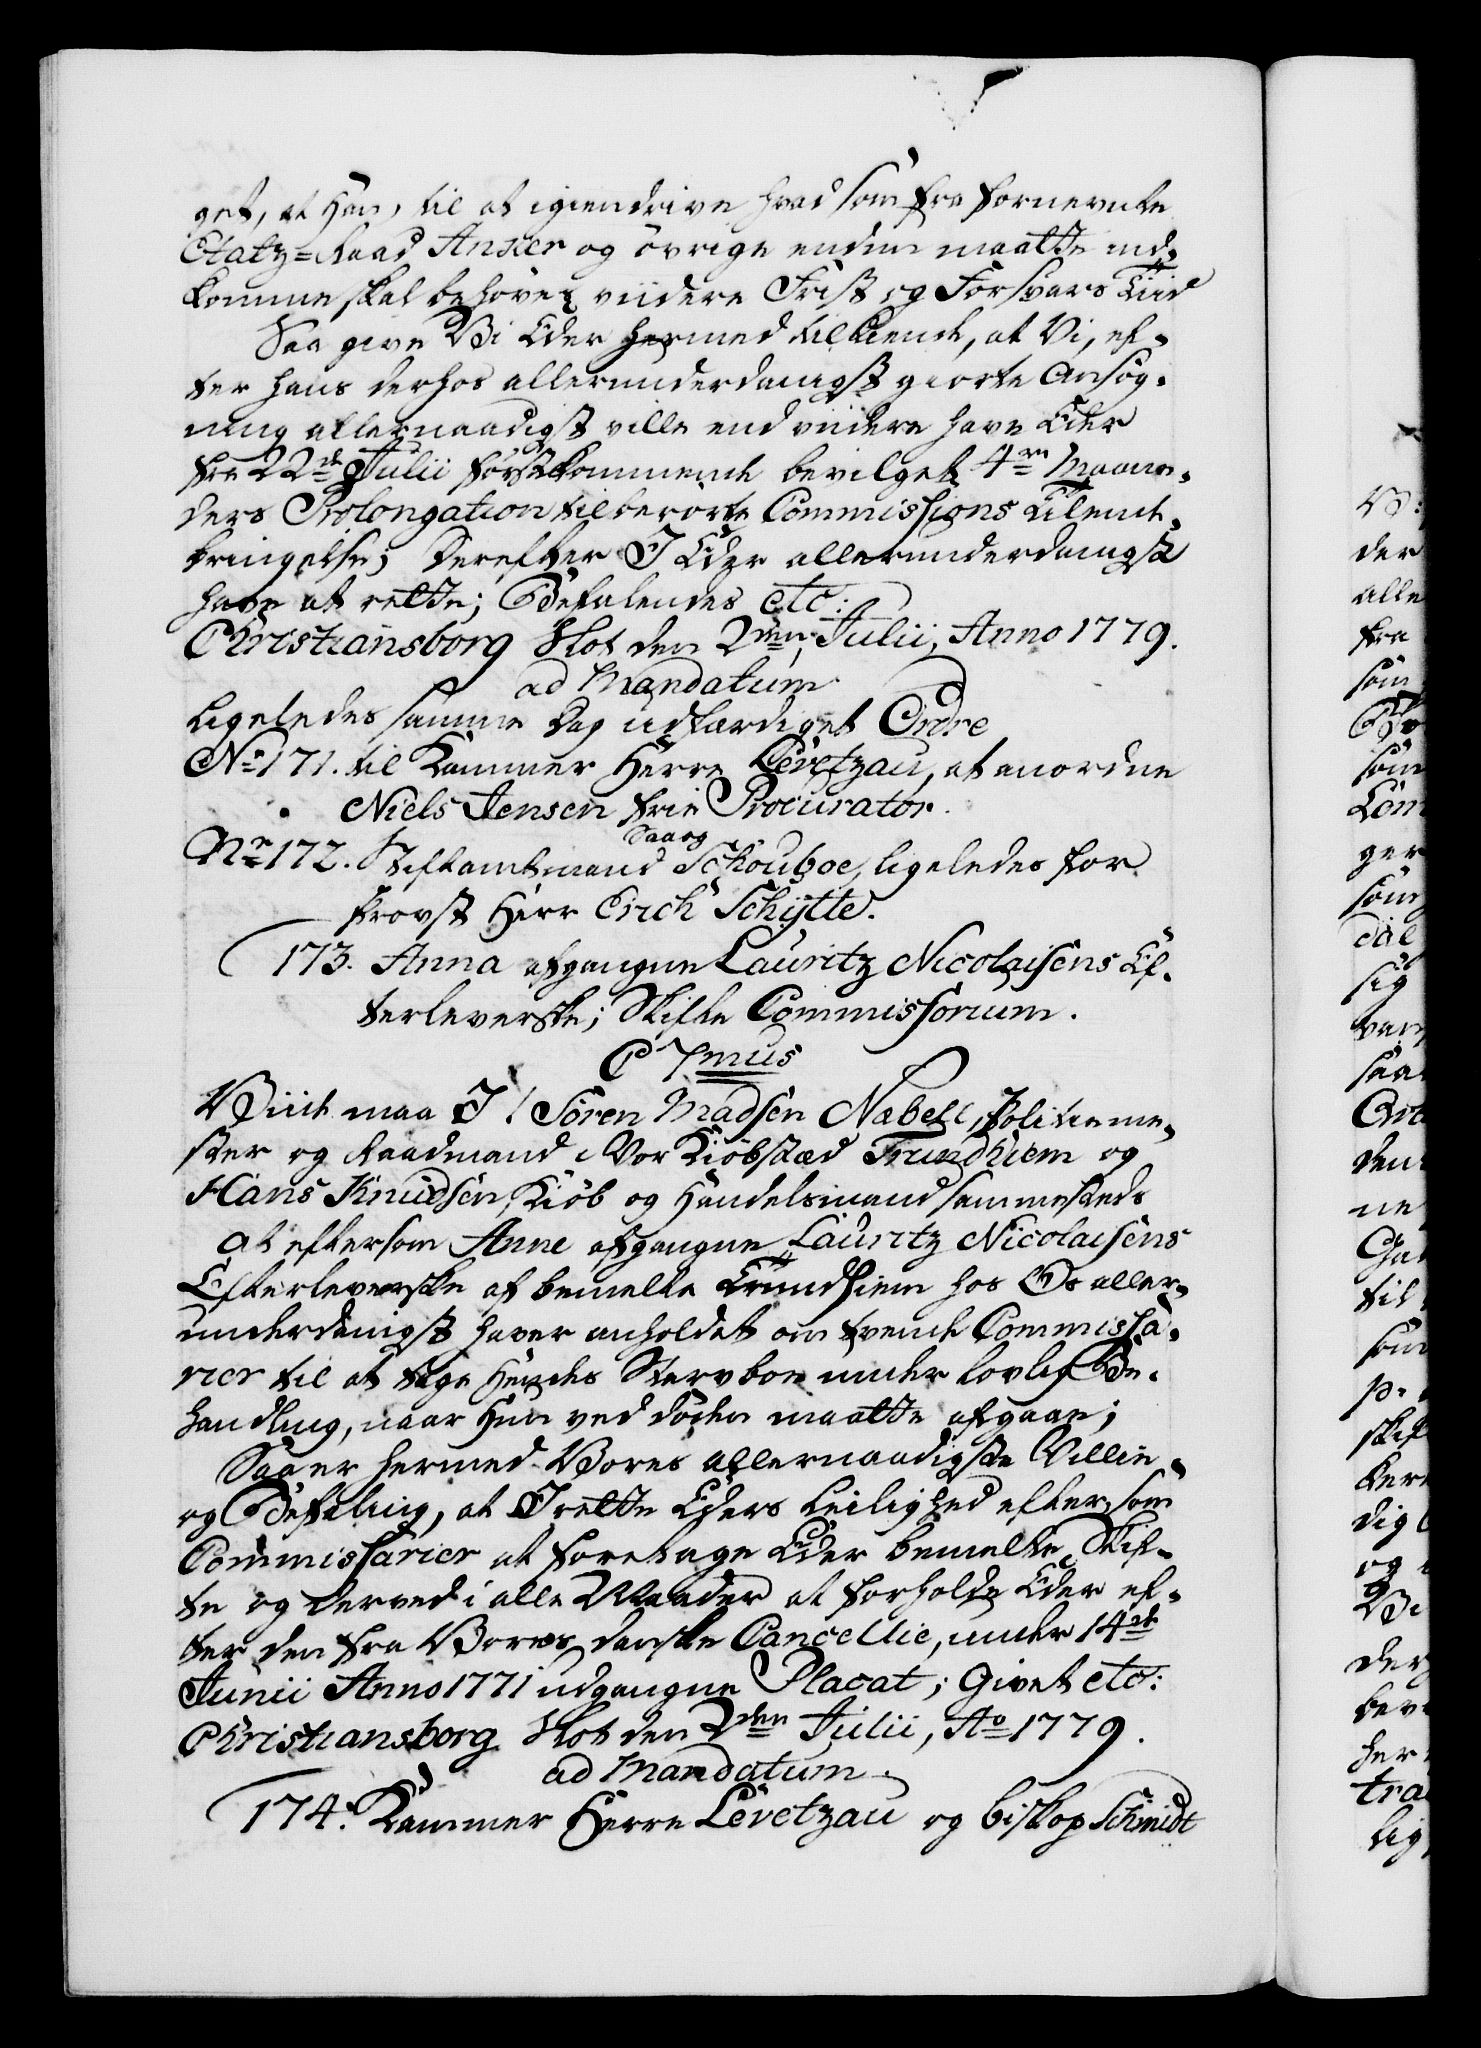 get, at Han, til at igiendrive hvad som fra fornevnte
Etatz=Raad Anker og övrige endnu maatte ind-
komme skal behöve viidere Frist og Forsvars Tiid
Saa give Vi Eder hermed tilkiende, at Vi, ef-
ter hans derhos allerunderdanigst giorte Ansög-
ning allernaadigst ville end viidere have Eder
fra 22de Julii förstkommende bevilget 4re Maane-
ders Prolongation til berörte Commissions Tilende-
bringelse; Derefter I Eder allerunderdanigst
have at rette; Befalendes etc:
Christiansborg Slot den 2den Julii, Anno 1779.
ad Mandatum
Ligeledes samme Dag udfærdiget Ordre
No 171. til Kammer Herre Levetzau, at anordne
Niels Jensen frie Procurator.
Nr 172. Stiftamtmand Saaog Schouboe, ligeledes for
Provst Herr Erich Schytte.
173. Anna afgangne Lauritz Nicolaisens Ef-
terleverske; Skifte Commissorium.
C 7mus
Viid maa I Sören Madsen Nabell, Politieme-
ster og Raadmand i Vor Kiöbstæd Trundhiem og
Hans Knudsen, Kiöb og Handelsmand sammesteds
at eftersom Anne afgangne Lauritz Nicolaisens
Efterleverske af bemelte Trundhiem hos Os aller-
underdanigst haver anholdet om tvende Commissa-
rier til at tage Hendes Stervboe under lovlig Be-
handling, naar Hun ved döden maatte afgaae;
Saa er hermed Vores allernaadigste Villie
og Befaling, at I rette Eders Leilighed efter som
Commissarier at foretage Eder bemelte Skif-
te og derved i alle Maader at forholde Eder ef-
ter den fra Vores danske Cancellie, under 14de
Junii Anno 1771 udgangne Placat; Givet etc:
Christiansborg Slot den 2den Julii, Ao 1779.
ad Mandatum.
174. Kammer Herre Levetzau og biskop Schmidt